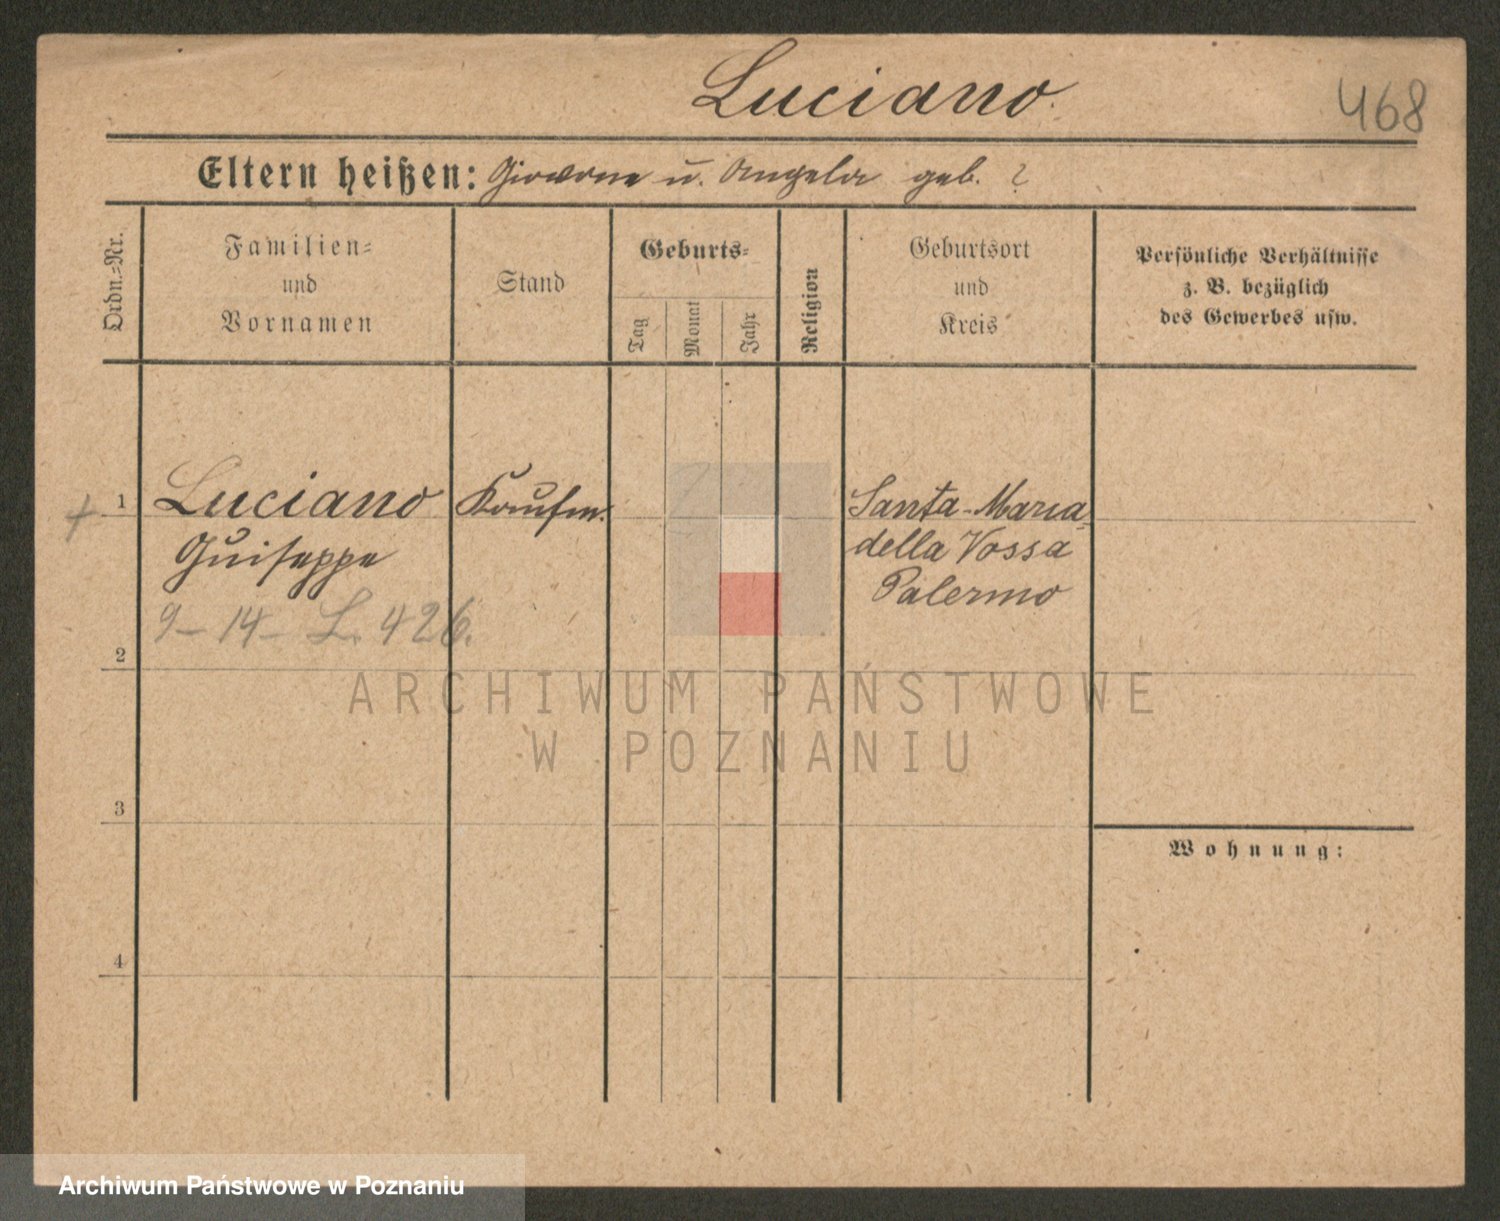 Luciano
468
Eltern heißen: Giovanne u. Angela geb. ?
Ordn.=Nr.
Familien=
und
Vornamen
Stand
Geburts=
Tag
Monat
Jahr
Religion
Geburtsort
und
Kreis
Persönliche Verhältnisse
z. B. bezüglich
des Gewerbes usw.
1
Luciano
Guiseppe
9 - 14 - L. 426.
Kaufm.
Santa-Maria
della Vossa
Palermo
2
ARCHIWUM PAŃSTWOWE
W POZNANIU
3
Wohnung:
4
Archiwum Państwowe w Poznaniu